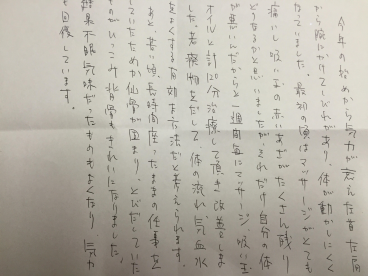 今年の始めから気力が衰えた首た肩
から腕にかけてしびれがあり、体が動かしにくく
なっていました。最初の頃はマッサージがとても
痛いし吸い玉の赤いあざがたくさん残り
どうなるかと思いましたが、それだけ自分の体
が悪いんだからと一週間毎にマッサージ、吸い玉
オイルと計120分治療して頂き改善しま
した。老廃物をだして、体の流れ、気血水
を良くする有効な方法だと考えられます。
あと、若い頃、長時間座ったままの仕事を
していたため仙骨が固まり、とびだしていた
ものがひっこみ背骨もきれいになりました。
結果不眠気味だったものもよくなり、気力
も回復しています。